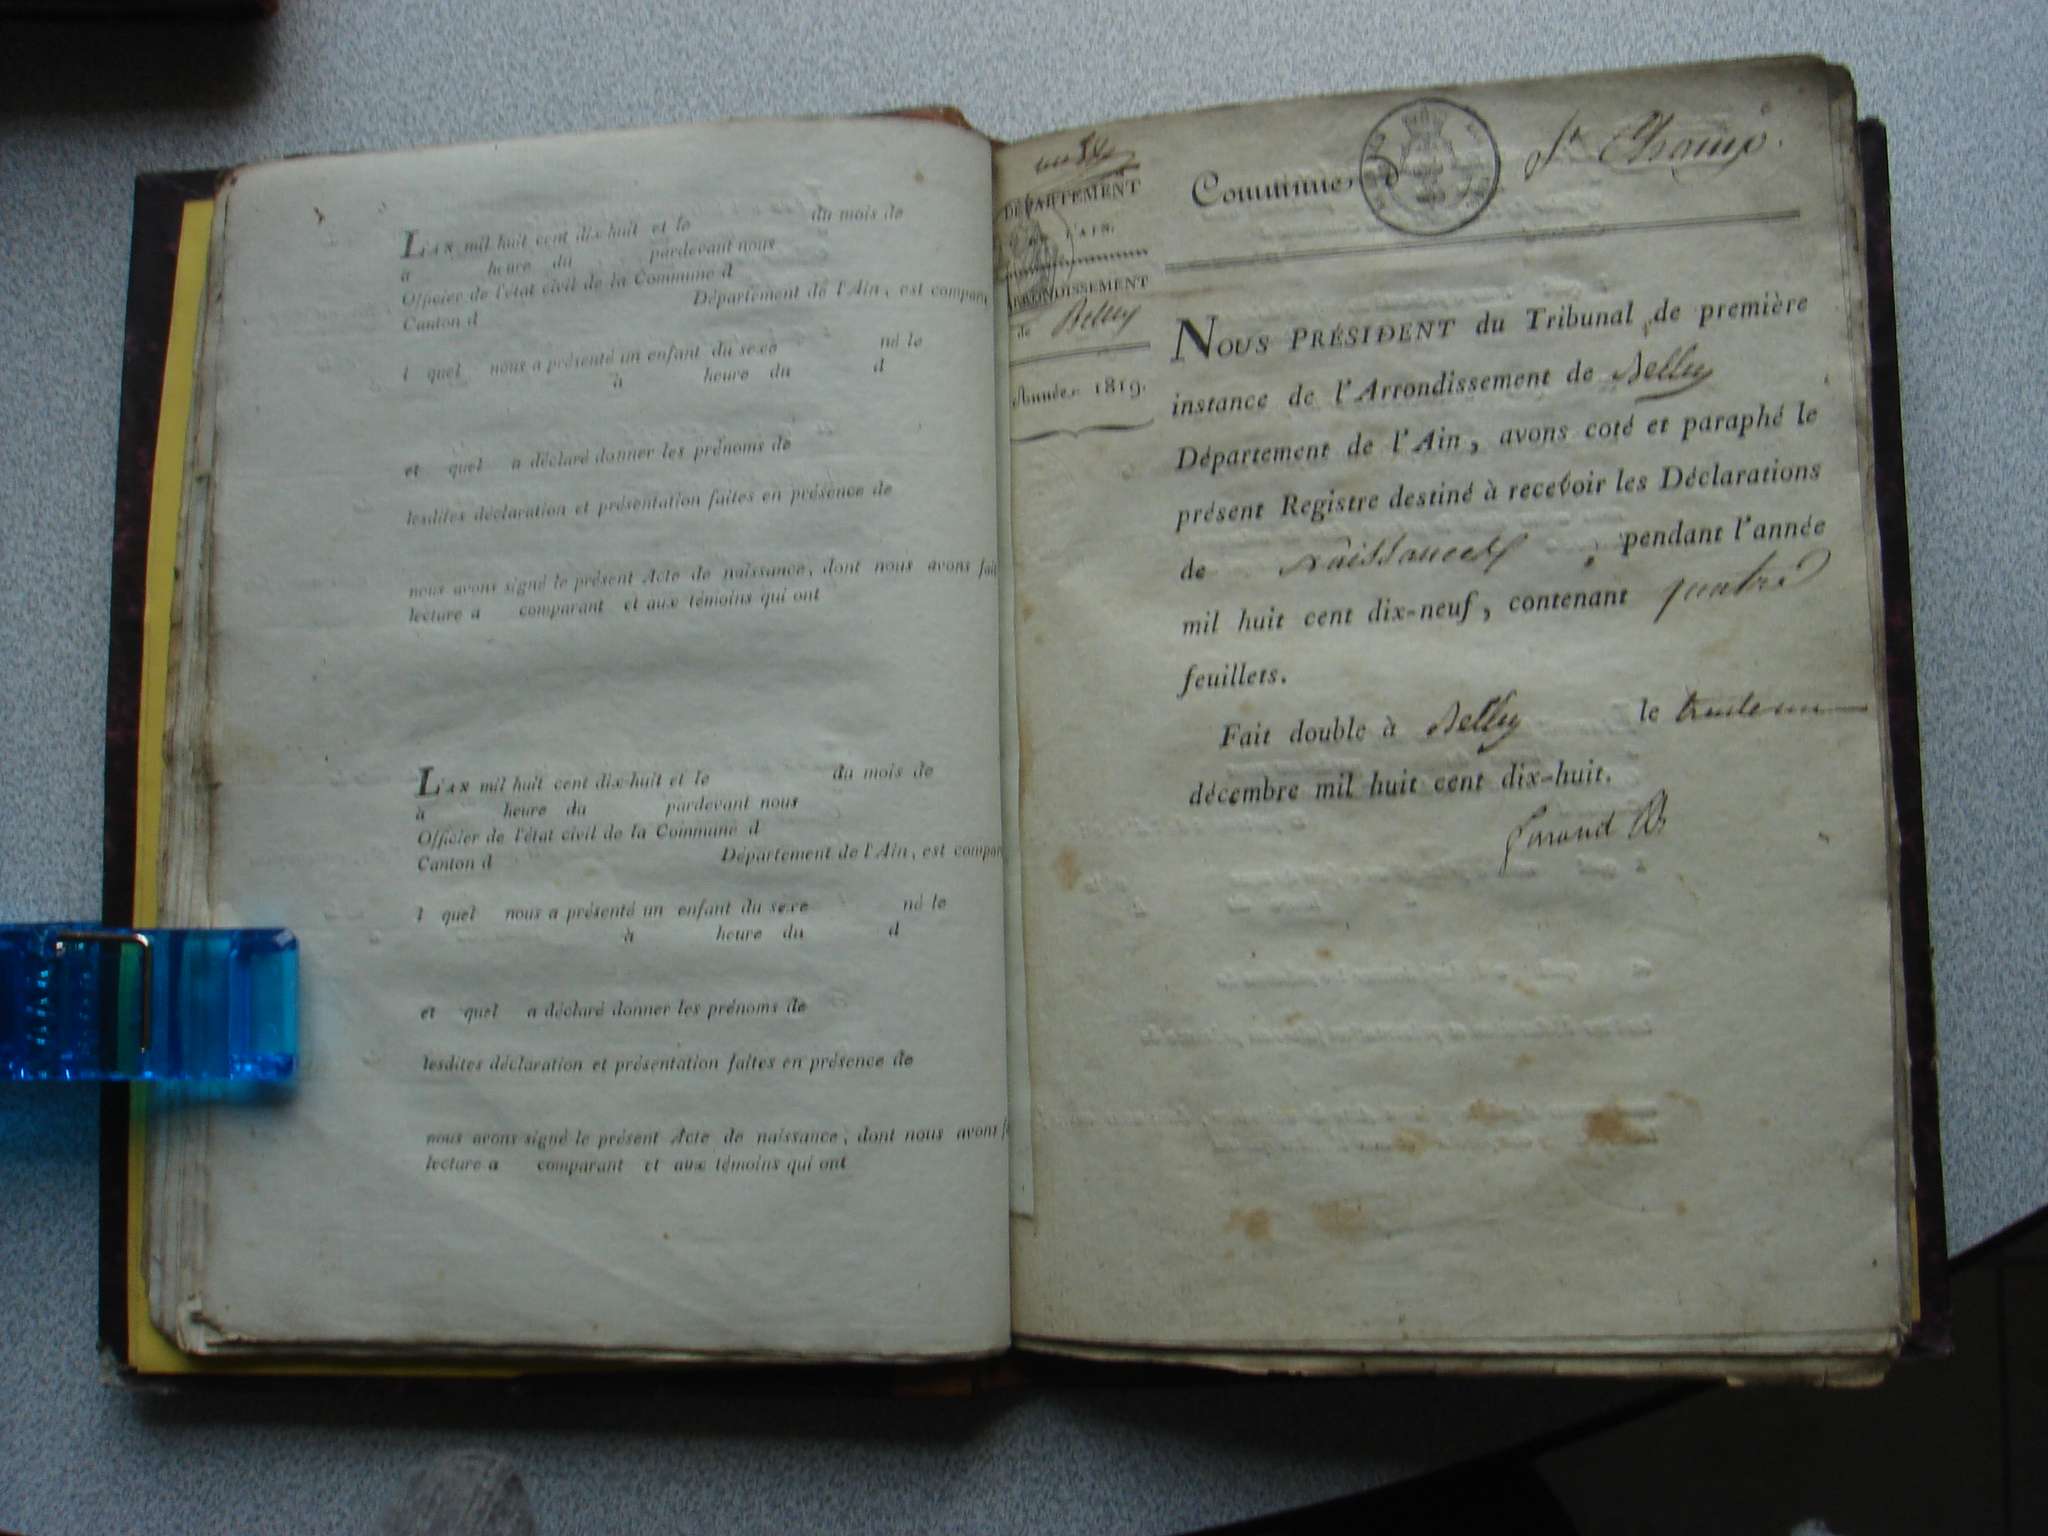 L'AN mil huit cent dix-huit et le du mois de
à heure du pardevant nous
Officier de l'état civil de la Commune d
Canton d Département de l'Ain, est compar
l quel nous a présenté un enfant du sexe né le
à heure du d
et quel a déclaré donner les prénoms de
lesdites déclaration et présentation faites en présence de
nous avons signé le présent Acte de naissance, dont nous avons fait
lecture a comparant et aux témoins qui ont
L'AN mil huit cent dix-huit et le du mois de
à heure du pardevant nous
Officier de l'état civil de la Commune d
Canton d Département de l'Ain, est compar
l quel nous a présenté un enfant du sexe né le
à heure du d
et quel a déclaré donner les prénoms de
lesdites déclaration et présentation faites en présence de
nous avons signé le présent Acte de naissance, dont nous avons f
lecture a comparant et aux témoins qui ont
DÉPARTEMENT
L'AIN.
ARRONDISSEMENT
de Belley
Année 1819.
Commune d St Champ.
NOUS PRÉSIDENT du Tribunal de première
instance de l'Arrondissement de Belley
Département de l'Ain, avons coté et paraphé le
présent Registre destiné à recevoir les Déclarations
de Naissances pendant l'année
mil huit cent dix-neuf, contenant quatre
feuillets.
Fait double à Belley le trente un
décembre mil huit cent dix-huit.